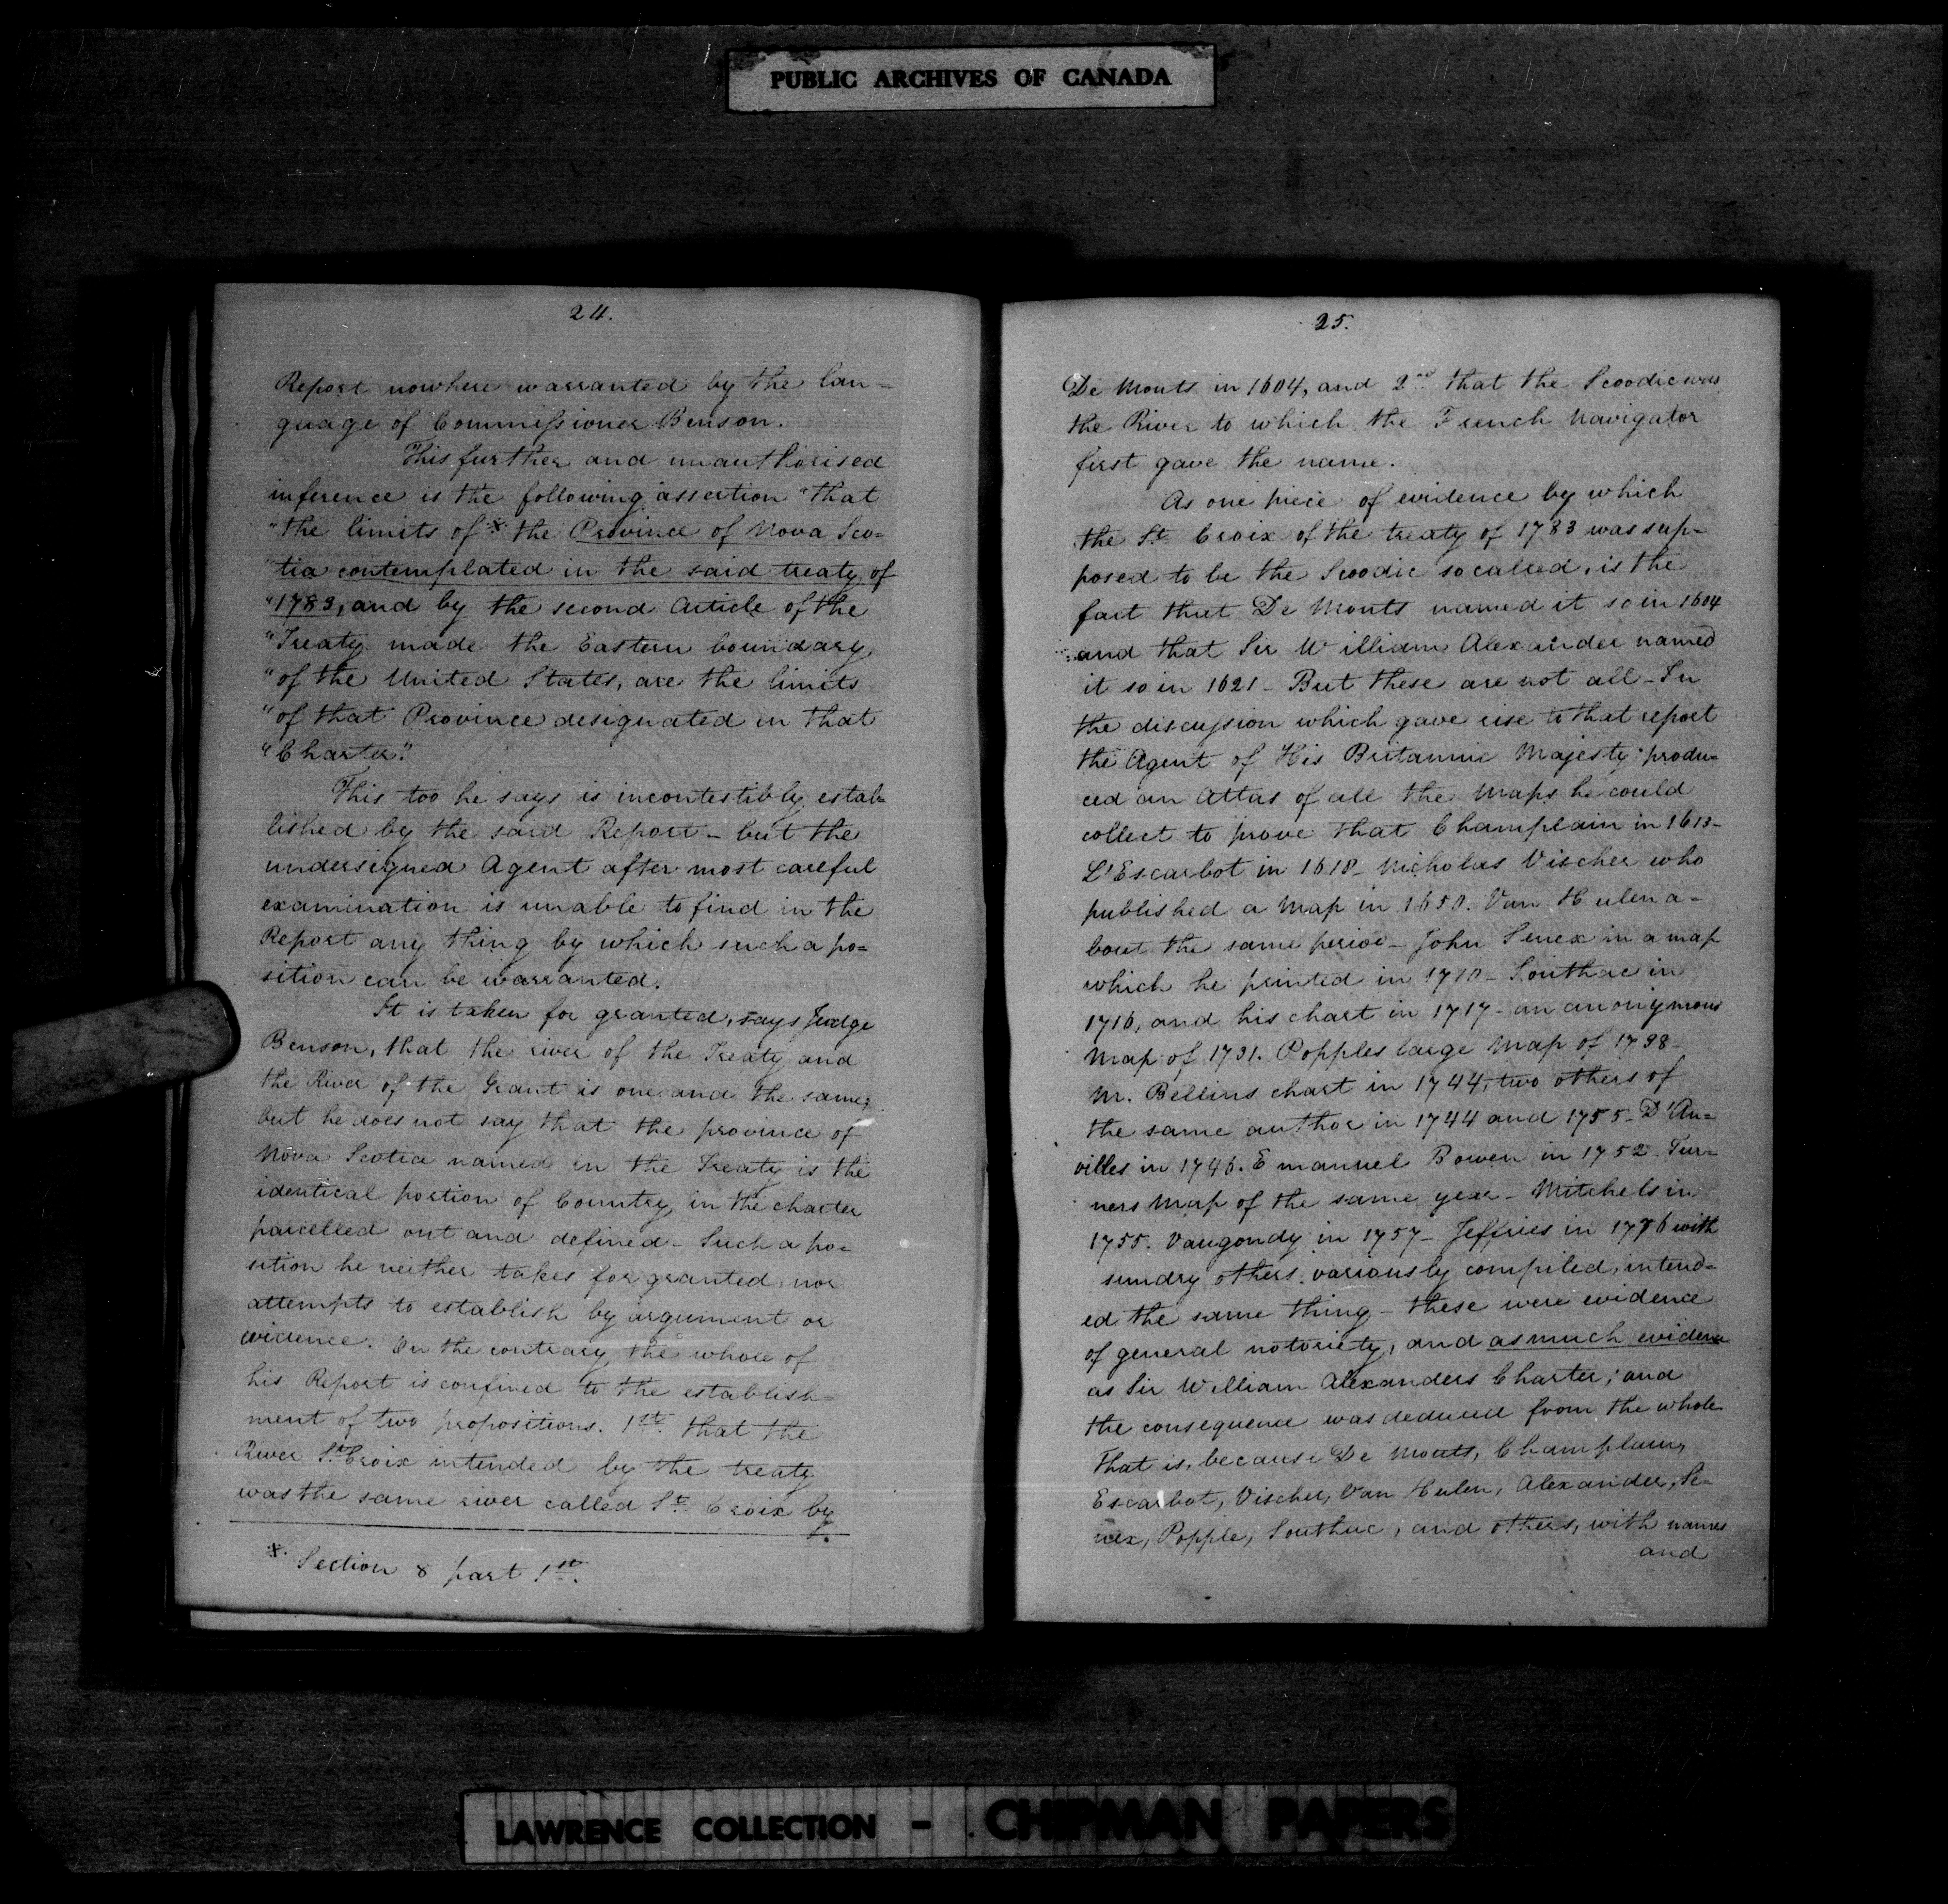 PUBLIC ARCHIVES OF CANADA
24.
Report nowhere warranted by the lan=
guage of Commissioner Benson.
This further and unauthorised
inference is the following assertion "that
"the limits of * the Province of Nova Sco=
"tia contemplated in the said treaty of
"1783, and by the second Article of the
"Treaty made the Eastern boundary
"of the United States, are the limits
"of that Province designated in that
"Charter."
This too he says is incontestibly estab=
lished by the said Report - but the
undersigned Agent after most careful
examination is unable to find in the
Report any thing by which such a po=
sition can be warranted.
It is taken for granted, says Judge
Benson, that the river of the Treaty and
the River of the Grant is one and the same;
but he does not say that the province of
Nova Scotia named in the Treaty is the
identical portion of Country in the charter
parcelled out and defined - Such a po=
sition he neither takes for granted nor
attempts to establish by argument or
evidence. On the contrary the whole of
his Report is confined to the establish=
ment of two propositions. 1st. that the
River St. Croix intended by the treaty
was the same river called St. Croix by
* Section 8 part 1st.
25.
De Monts in 1604, and 2nd that the Scoodic was
the River to which the French Navigator
first gave the name.
As one piece of evidence by which
the St. Croix of the treaty of 1783 was sup=
posed to be the Scoodic so called, is the
fact that De Monts named it so in 1604
and that Sir William Alexander named
it so in 1621 - But these are not all - In
the discussion which gave rise to that report
the Agent of His Britannic Majesty produ=
ced an Attas of all the Maps he could
collect to prove that Champlain in 1613 -
L'Escarbot in 1618 - Nicholas Vischer who
published a Map in 1650. Van Hulen a=
bout the same period - John Senex in a map
which he printed in 1710 - Southac in
1716, and his chart in 1717 - an anonymous
Map of 1731. Popples large Map of 1738 -
M. Bellins chart in 1744, two others of
the same author in 1744 and 1755 - D'An=
villes in 1746. Emanuel Bowen in 1752 - Tur=
ners Map of the same year - Mitchels in
1755. Vaugondy in 1757 - Jeffries in 1776 with
sundry others variously compiled, intend=
ed the same thing - these were evidence
of general notoriety, and as much evidence
as Sir William Alexanders Charter; and
the consequence was deduced from the whole
That is, because De Monts, Champlain,
Escarbot, Vischer, Van Hulen, Alexander, Se=
nex, Popple, Southac, and others, with names
and
LAWRENCE COLLECTION - CHIPMAN PAPERS